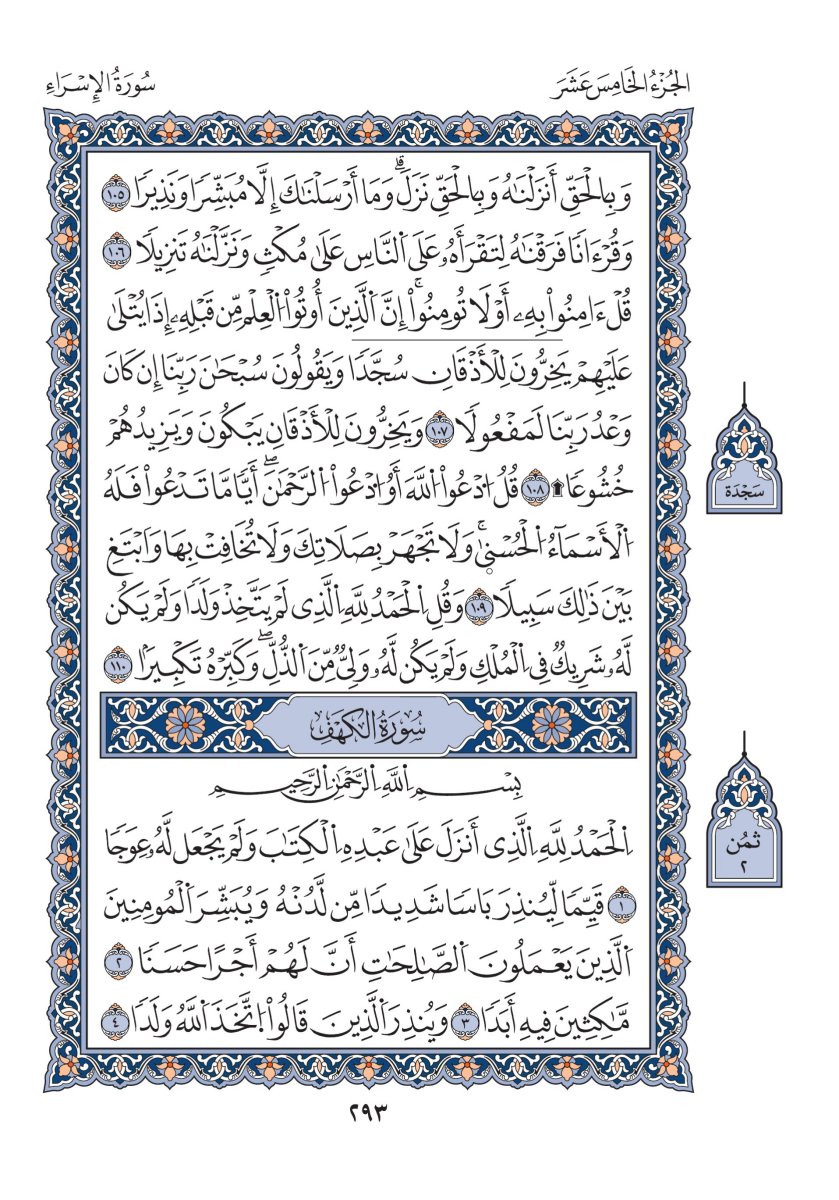 الجُزْءُ الخَامِسَ عَشَرَ
سُورَةُ الإِسْرَاءِ
وَبِالْحَقِّ أَنزَلْنَٰهُ وَبِالْحَقِّ نَزَلَۗ وَمَا أَرْسَلْنَٰكَ إِلَّا مُبَشِّرٗا وَنَذِيرٗا ١٠٥
وَقُرْءَانٗا فَرَقْنَٰهُ لِتَقْرَأَهُۥ عَلَى اَ۬لنَّاسِ عَلَىٰ مُكْثٖ وَنَزَّلْنَٰهُ تَنزِيلٗا ١٠٦
قُلْ ءَامِنُواْ بِهِۦ أَوْ لَا تُومِنُواْۚ إِنَّ اَ۬لَّذِينَ أُوتُواْ اُ۬لْعِلْمَ مِن قَبْلِهِۦ إِذَا يُتْلَىٰ
عَلَيْهِمْ يَخِرُّونَ لِلْأَذْقَانِ سُجَّدٗا وَيَقُولُونَ سُبْحَٰنَ رَبِّنَا إِن كَانَ
وَعْدُ رَبِّنَا لَمَفْعُولٗا ١٠٧ وَيَخِرُّونَ لِلْأَذْقَانِ يَبْكُونَ وَيَزِيدُهُمْ
خُشُوعٗا۩ ١٠٨ قُلُ اُ۟دْعُواْ اُ۬للَّهَ أَوُ اُ۟دْعُواْ اُ۬لرَّحْمَٰنَۖ أَيّٗا مَّا تَدْعُواْ فَلَهُ
اُ۬لْأَسْمَآءُ اُ۬لْحُسْنۭيٰۚ وَلَا تَجْهَرْ بِصَلَاتِكَ وَلَا تُخَافِتْ بِهَا وَابْتَغِ
بَيْنَ ذَٰلِكَ سَبِيلٗا ١٠٩ وَقُلِ اِ۬لْحَمْدُ لِلَّهِ اِ۬لَّذِى لَمْ يَتَّخِذْ وَلَدٗا وَلَمْ يَكُن
لَّهُۥ شَرِيكٞ فِى اِ۬لْمُلْكِ وَلَمْ يَكُن لَّهُۥ وَلِىّٞ مِّنَ اَ۬لذُّلِّۖ وَكَبِّرْهُ تَكْبِيرٗا ١١٠
سُورَةُ الكَهْفِ
بِسْمِ اِ۬للَّهِ اِ۬لرَّحْمَٰنِ اِ۬لرَّحِيمِ
اِ۬لْحَمْدُ لِلَّهِ اِ۬لَّذِى أَنزَلَ عَلَىٰ عَبْدِهِ اِ۬لْكِتَٰبَ وَلَمْ يَجْعَل لَّهُۥ عِوَجٗا
١ قَيِّمٗا لِّيُنذِرَ بَاسٗا شَدِيدٗا مِّن لَّدُنْهُ وَيُبَشِّرَ اَ۬لْمُومِنِينَ
اَ۬لَّذِينَ يَعْمَلُونَ اَ۬لصَّٰلِحَٰتِ أَنَّ لَهُمْ أَجْرًا حَسَنٗا ٢
مَّٰكِثِينَ فِيهِ أَبَدٗا ٣ وَيُنذِرَ اَ۬لَّذِينَ قَالُواْ اُ۪تَّخَذَ اَ۬للَّهُ وَلَدٗا ٤
سَجْدَة
ثُمُن
٢
٢٩٣